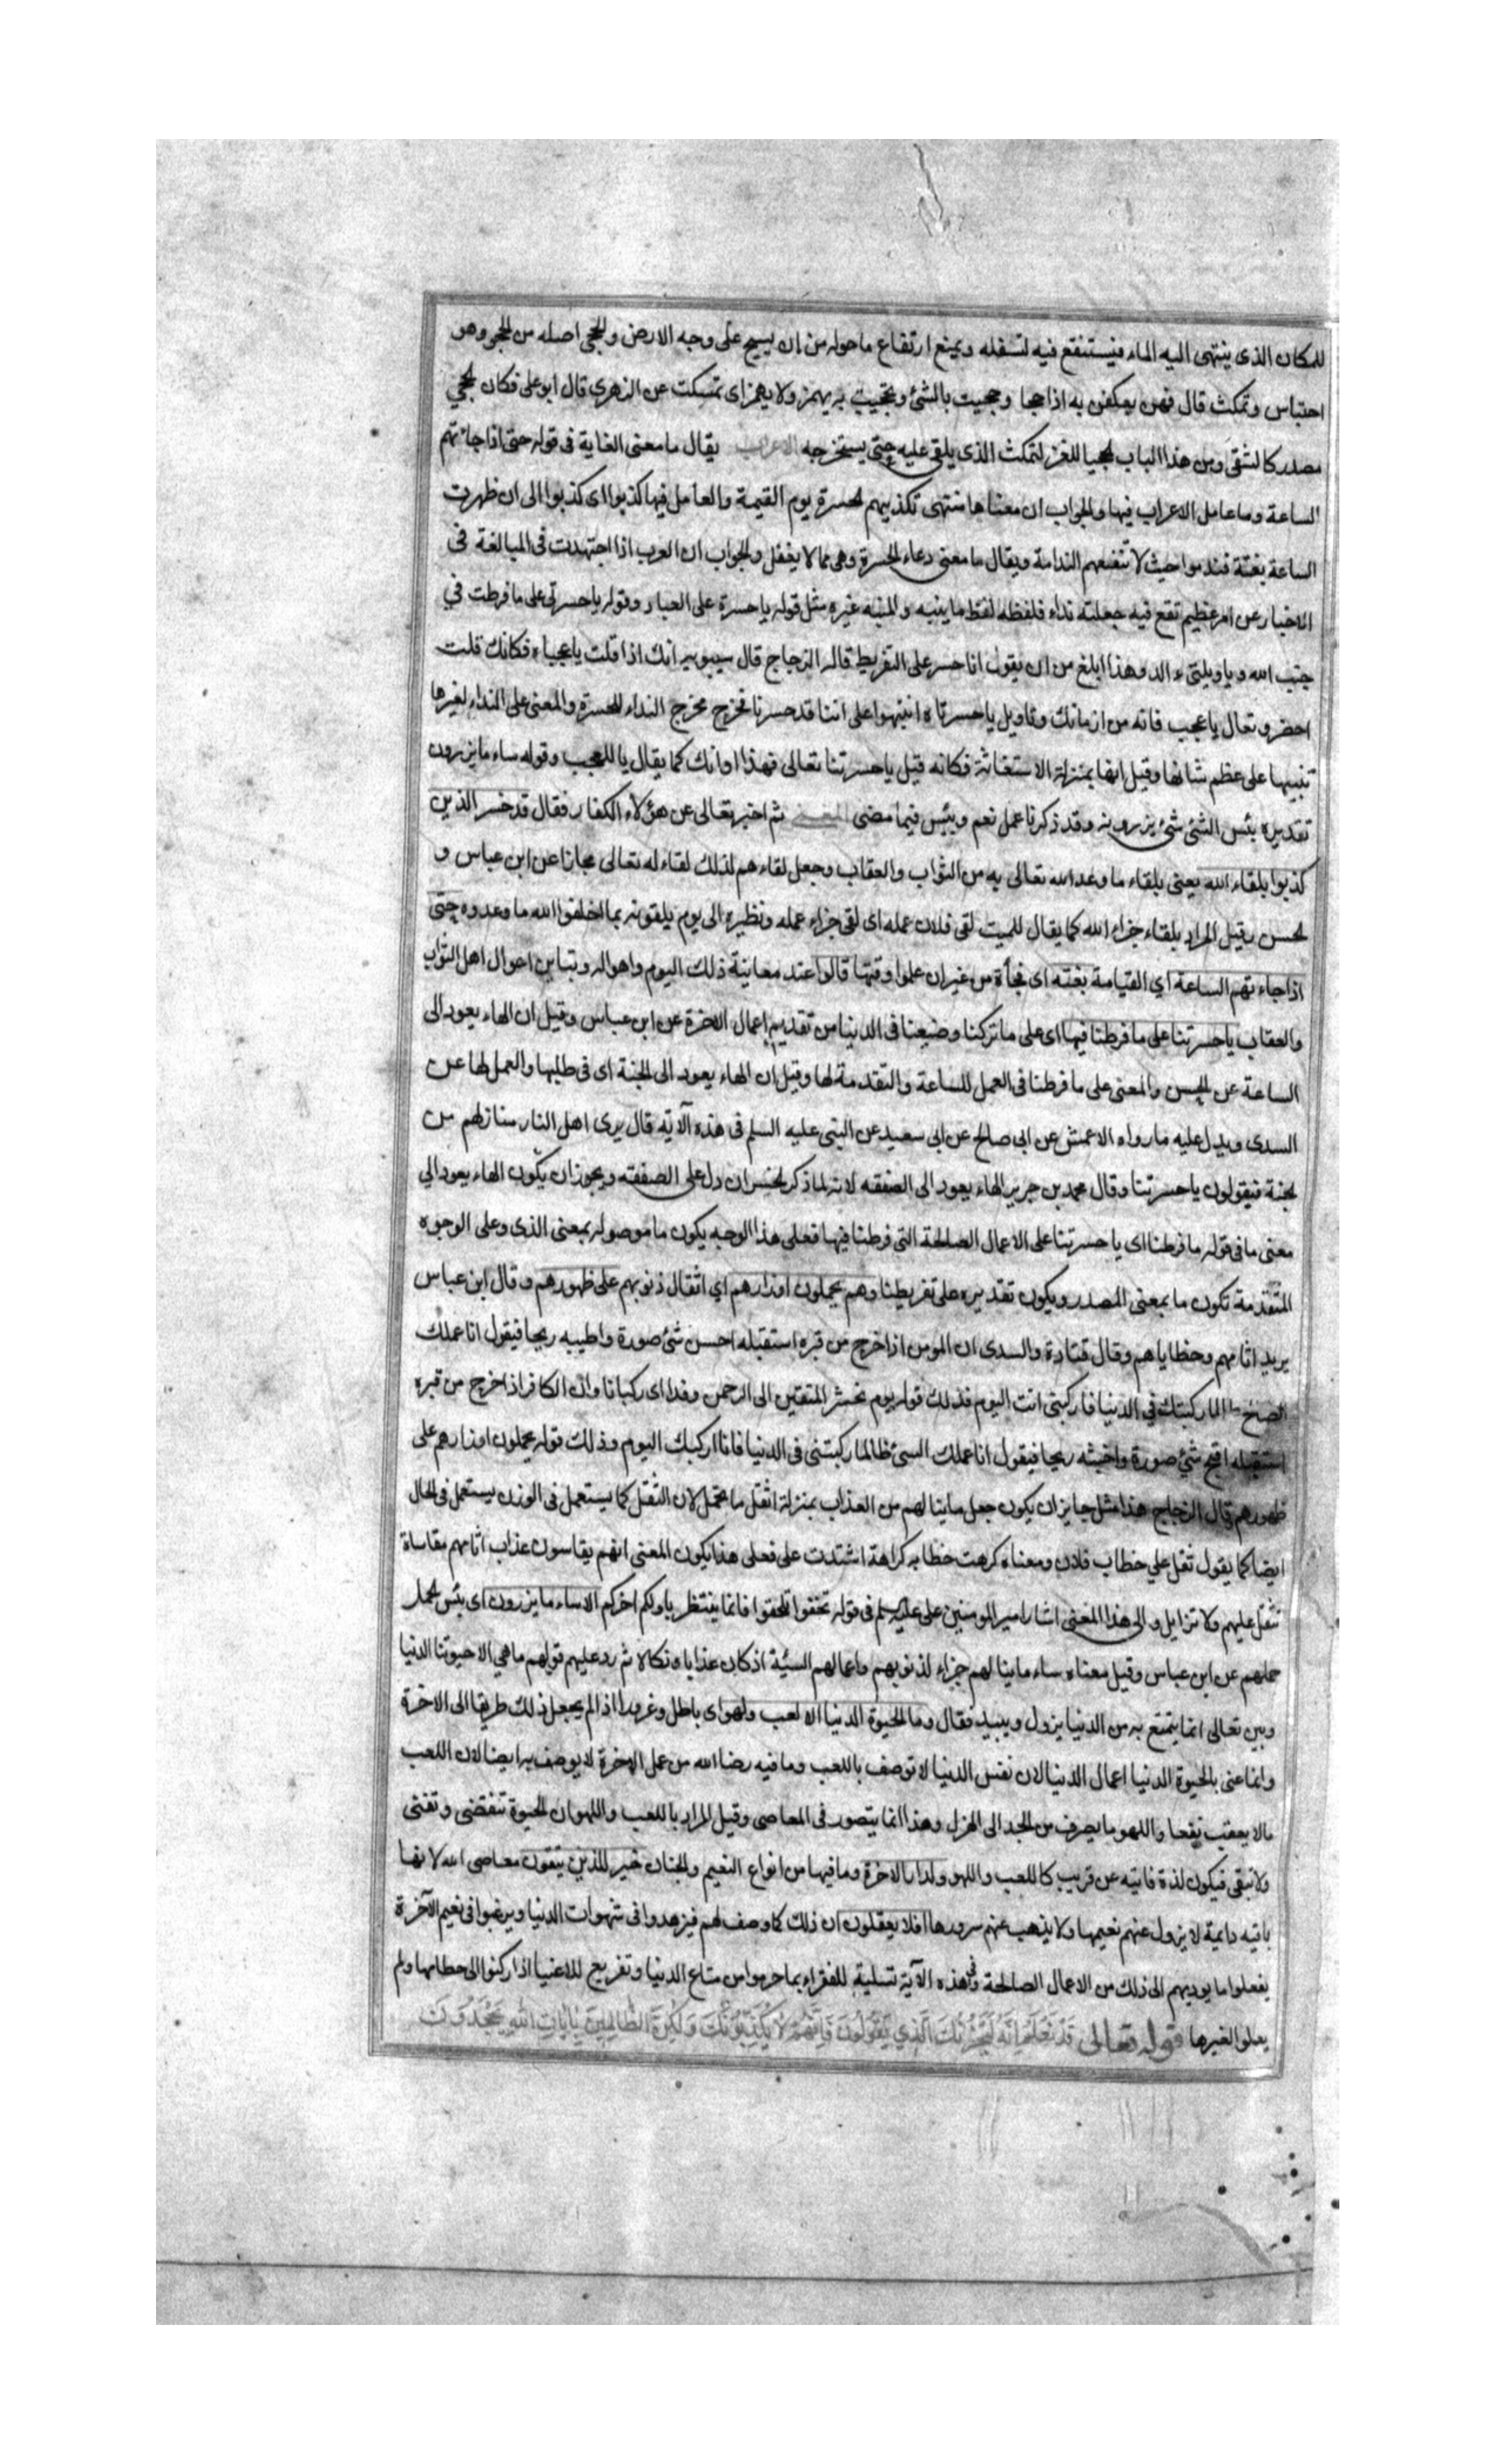 للمكان الذى ينتهى اليه الماء فيستنقع فيه لتسفله ويمنع ارتفاع ماحوله من ان يسيح على وجه الارض والحجى اصله من الحجر وهو
احتباس وتمكث قال فهن يعكفن به اذا حجا وحجيت بالشئ وتحجيت به يهمز ولا يهمز اى تمسكت عن الزهرى قال ابو على فكان الحجي
مصدر كالشقى ومن هذا الباب الحجيا للغز لتمكث الذى يلقى عليه حتى يستخرجه الاعراب يقال ما معنى الغاية فى قوله حتى اذا جاءتهم
الساعة وما عامل الاعراب فيها والجواب ان معناها منتهى تكذيبهم الحسرة يوم القيمة والعامل فيها كذبوا اى كذبوا الى ان ظهرت
الساعة بغتة فندموا حيث لا تنفعهم الندامة ويقال ما معنى دعاء الحسرة وهى مما لا يعقل والجواب ان العرب اذا اجتهدت فى المبالغة فى
الاخبار عن امر عظيم تقع فيه جعلته نداء فلفظه لفظ ما ينبه والمنبه غيره مثل قوله ياحسرة على العباد وقوله ياحسرتى على ما فرطت في
جنب الله و ياويلتىء الد وهذا ابلغ من ان يقول انا حسر على التفريط قاله الزجاج قال سيبويه انك اذا قلت ياعجباه فكانك قلت
احضر وتعال ياعجب فانه من ازمانك وتاويل ياحسرتاه انتبهوا على اننا قد حسرنا فخرج مخرج النداء للحسرة والمعنى على النداء لغيرها
تنبيها على عظم شانها وقيل انها بمنزلة الاستغاثة فكانه قيل ياحسرتنا تعالى فهذا اوانك كما يقال ياللعجب وقوله ساء ما يزرون
تقديره بئس الشئ شئ يزرونه وقد ذكرنا عمل نعم وبئس فيما مضى المعنى ثم اخبر تعالى عن هؤلاء الكفار فقال قد خسر الذين
كذبوا بلقاء الله يعنى بلقاء ما وعد الله تعالى به من الثواب والعقاب وجعل لقاءهم لذلك لقاء له تعالى مجازا عن ابن عباس و
لحسن وقيل المراد بلقاء جزاء الله كما يقال للميت لقى فلان عمله اى لقى جزاء عمله ونظيره الى يوم يلقونه بما اخلفوا الله ما وعدوه حتى
اذا جاءتهم الساعة اي القيامة بغتة اى فجأة من غير ان علموا وقتها قالوا عند معاينة ذلك اليوم واهواله وتباين احوال اهل الثواب
والعقاب ياحسرتنا على ما فرطنا فيها اى على ما تركنا وضيعنا فى الدنيا من تقديم اعمال الاخرة عن ابن عباس وقيل ان الهاء يعود الى
الساعة عن الحسن والمعنى على ما فرطنا فى العمل للساعة والتقدمة لها وقيل ان الهاء يعود الى الجنة اى فى طلبها والعمل لها عن
السدى ويدل عليه ما رواه الاعمش عن ابى صالح عن ابى سعيد عن النبى عليه السلم فى هذه الآية قال يرى اهل النار منازلهم من
لجنة فيقولون ياحسرتنا وقال محمد بن جرير الهاء يعود الى الصفقة لانه لما ذكر الخسران دل على الصفقة ويجوز ان يكون الهاء يعود الي
معنى ما فى قوله ما فرطنا اى ياحسرتنا على الاعمال الصالحة التى فرطنا فيها فعلى هذا الوجه يكون ما موصوله بمعنى الذى وعلى الوجوه
المتقدمة تكون ما بمعنى المصدر ويكون تقديره على تفريطنا وهم يحملون اوزارهم اي اثقال ذنوبهم على ظهورهم وقال ابن عباس
يريد اثامهم وخطاياهم وقال قتادة والسدى ان المومن اذا خرج من قبره استقبله احسن شئ صورة واطيبه ريحا فيقول انا عملك
الصلح طالما ركبتك في الدنيا فاركبنى انت اليوم فذلك قوله يوم نحشر المتقين الى الرحمن وفدا اى ركبانا وان الكافر اذا خرج من قبره
استقبله اقبح شئ صورة واخبثه ريحا فيقول انا عملك السئ طالما ركبتنى فى الدنيا فانا اركبك اليوم وذلك قوله يحملون اوزارهم على
ظهورهم وقال الزجاج هذا مثل جايز ان يكون جعل ما ينا لهم من العذاب بمنزلة اثقل ما يحمل لان الثقل كما يستعمل فى الوزن يستعمل فى الحال
ايضا كما يقول ثقل علي خطاب فلان ومعناه كرهت خطابه كراهة اشتدت على فعلى هذا يكون المعنى انهم يقاسون عذاب اثامهم مقاساة
تثقل عليهم ولا تزايل والى هذا المعنى اشار امير المومنين على عليه السلم فى قوله تخففوا تلحقوا فانما ينتظر باولكم اخركم الاساء ما يزرون اى بئس الحمل
حملهم عن ابن عباس وقيل معناه ساء ما ينا لهم جزاء لذنوبهم واعمالهم السيئة اذ كان عذابا ونكالا ثم رد عليهم قولهم ما هي الا حيوتنا الدنيا
وبين تعالى انما يتمتع به من الدنيا يزول ويبيد فقال وما الحيوة الدنيا الا لعب ولهو اى باطل وغرورا اذا لم يجعل ذلك طريقا الى الاخرة
وانما عنى بالحيوة الدنيا اعمال الدنيا لان نفس الدنيا لا توصف باللعب وما فيه رضا الله من عمل الاخرة لا يوصف به ايضا لان اللعب
مالا يعقب نفعا واللهو ما يصرف من الجد الى الهزل وهذا انما يتصور فى المعاصى وقيل المراد باللعب واللهو ان الحيوة تنقضى وتفنى
ولا تبقى فيكون لذة فانيه عن قريب كاللعب واللهو ولدار الاخرة وما فيها من انواع النعيم والجنان خير للذين يتقون معاصى الله لانها
باقيه دايمة لا يزول عنهم نعيمها ولا يذهب عنهم سرورها افلا يعقلون ان ذلك كما وصف لهم فيزهدوا فى شهوات الدنيا ويرغبوا فى نعيم الآخرة
يفعلوا ما يوديهم الى ذلك من الاعمال الصالحة وفى هذه الآية تسلية للفقراء بما حرموا من متاع الدنيا وتقريع للاغنيا اذا ركنوا الى حطامها ولم
يعملوا لغيرها قوله تعالى قَدْ نَعْلَمُ إِنَّهُ لَيَحْزُنُكَ الَّذِي يَقُولُونَ فَإِنَّهُمْ لَا يُكَذِّبُونَكَ وَلَٰكِنَّ الظَّالِمِينَ بِآيَاتِ اللَّهِ يَجْحَدُونَ